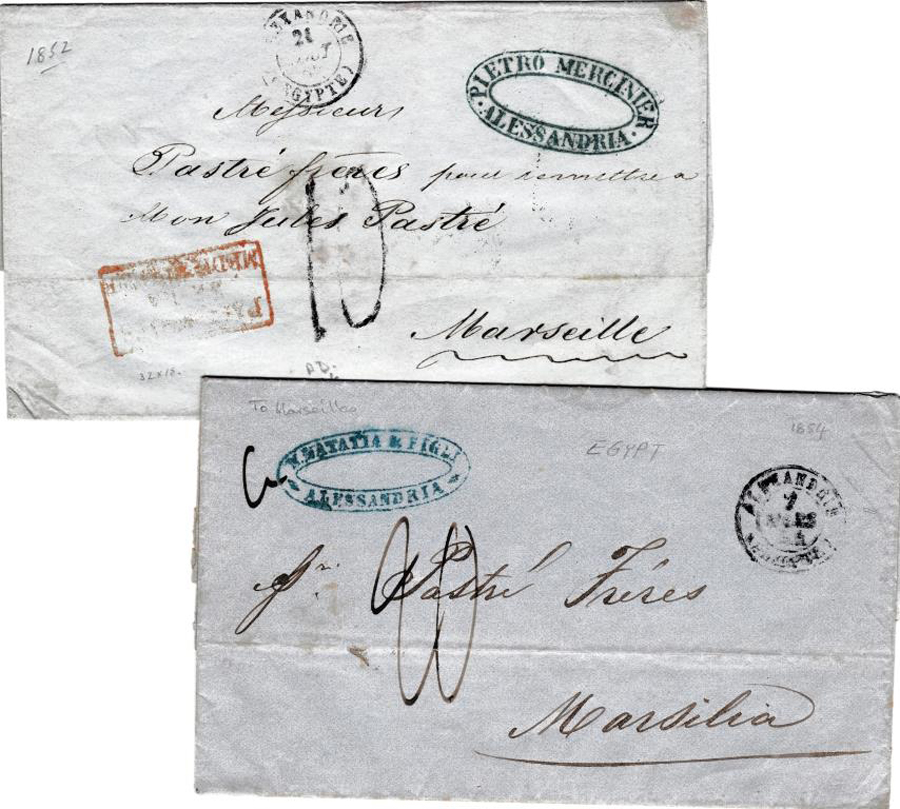 1852
ALEXANDRIE
21
AOUT
(EGYPTE)
PIETRO MERCINIER
ALESSANDRIA
Messieurs
Pastré frères pour remettre a
Mon Jules Pastré
10
Marseille
32x18.
P.D.
To Marseilles
EGYPT
1854
N. NATATIA & FIGLI
ALESSANDRIA
ALEXANDRIE
7
MARS
54
(EGYPTE)
Pastré Fréres
Marsilia